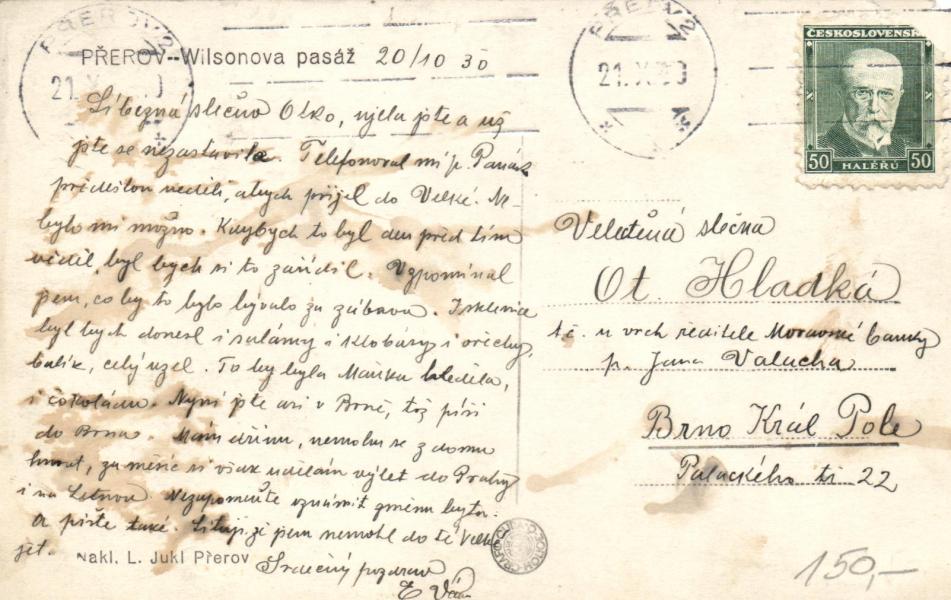 PŘEROV 2
PŘEROV--Wilsonova pasáž 20/10 30
Líbezná slečno Olko, ujela jste a už
jste se nezastavila. Telefonoval mi p.
předešlou neděli, abych přijel do Velké. Ne-
bylo mi možno. Kdybych to byl den před tím
věděl, byl bych si to zařídil. Vzpomínal
jsem, co by to bylo bývalo za zábavu.
byl bych donesl i salámy i klobásy i ořechy,
balík, celý uzel. To by byla Mařka hleděla,
i čokoládu. Nyní jste asi v Brně, tož píši
do Brna. Mám dřinu, nemohu se z domu
hnout, za měsíc si však udělám výlet do Prahy
i na Letnou. Nezapomeňte oznámit změnu bytu.
A pište také. Lituji, že jsem nemohl do té Velké
jet.
Srdečný pozdrav
Nakl. L. Jukl Přerov
PŘEROV 2
21. X. 30
ČESKOSLOVENSK
50 HALÉŘŮ 50
Velectěná slečna
Ot. Hladká
t. č. u vrch. ředitele Moravské banky
p. Jana Valacha
Brno Král Pole
Palackého tř. 22
150,-